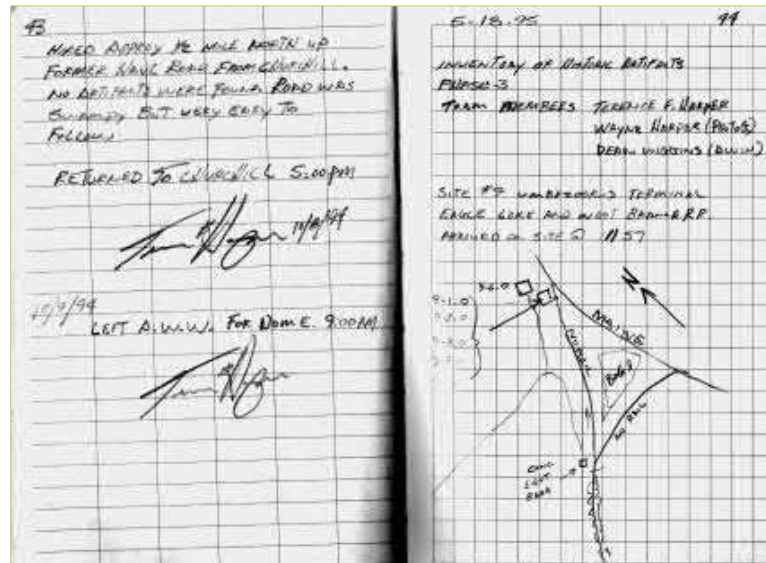 43
HIKED APPROX 1/2 MILE NORTH UP
FORMER HAUL ROAD FROM CHURCHILL.
NO ARTIFACTS WERE FOUND. ROAD WAS
BUT VERY EASY TO
FOLLOW.
RETURNED TO CHURCHILL 5:00 PM
11/8/94
/9/94
LEFT A.W.W. FOR HOME. 9:00AM
5-18-95
44
INVENTORY OF HISTORIC ARTIFACTS
PHASE-3
TEAM MEMBERS TERENCE F. HARPER
WAYNE HARPER (PHOTOS)
DEAN (
SITE #9 UMBAZOOKSUS TERMINAL
EAGLE LAKE AND WEST BRANCH R.R.
ARRIVED ON SITE @ 1157
N
9-6-0
9-1-0
MAINE
BLDG
NO RAIL